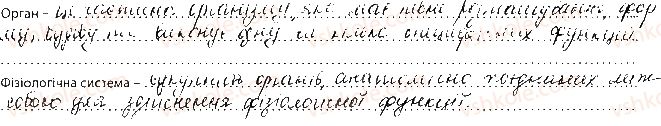 Орган – це частина організму, яка має певне розташування, фор
му, будову та виконує одну чи кілька специфічних функцій.
Фізіологічна система – сукупність органів, анатомічно поєднаних між
собою для здійснення фізіологічної функції.